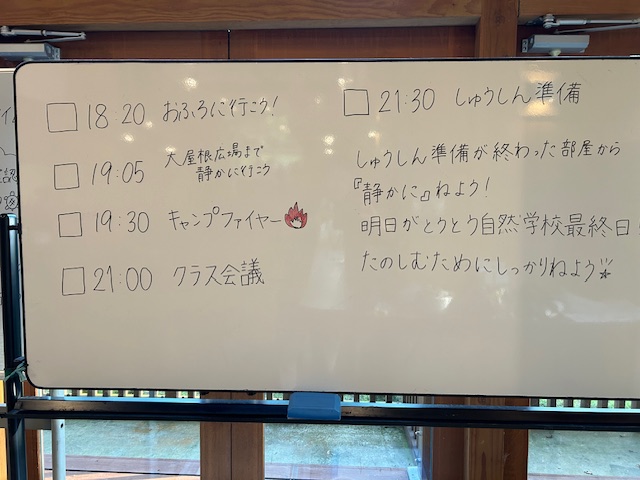 18:20 おふろに行こう!
19:05 大屋根広場まで
静かに行こう
19:30 キャンプファイヤー
21:00 クラス会議
21:30 しゅうしん準備
しゅうしん準備が終わった部屋から
『静かに』ねよう!
明日がとうとう自然学校最終日
たのしむためにしっかりねよう